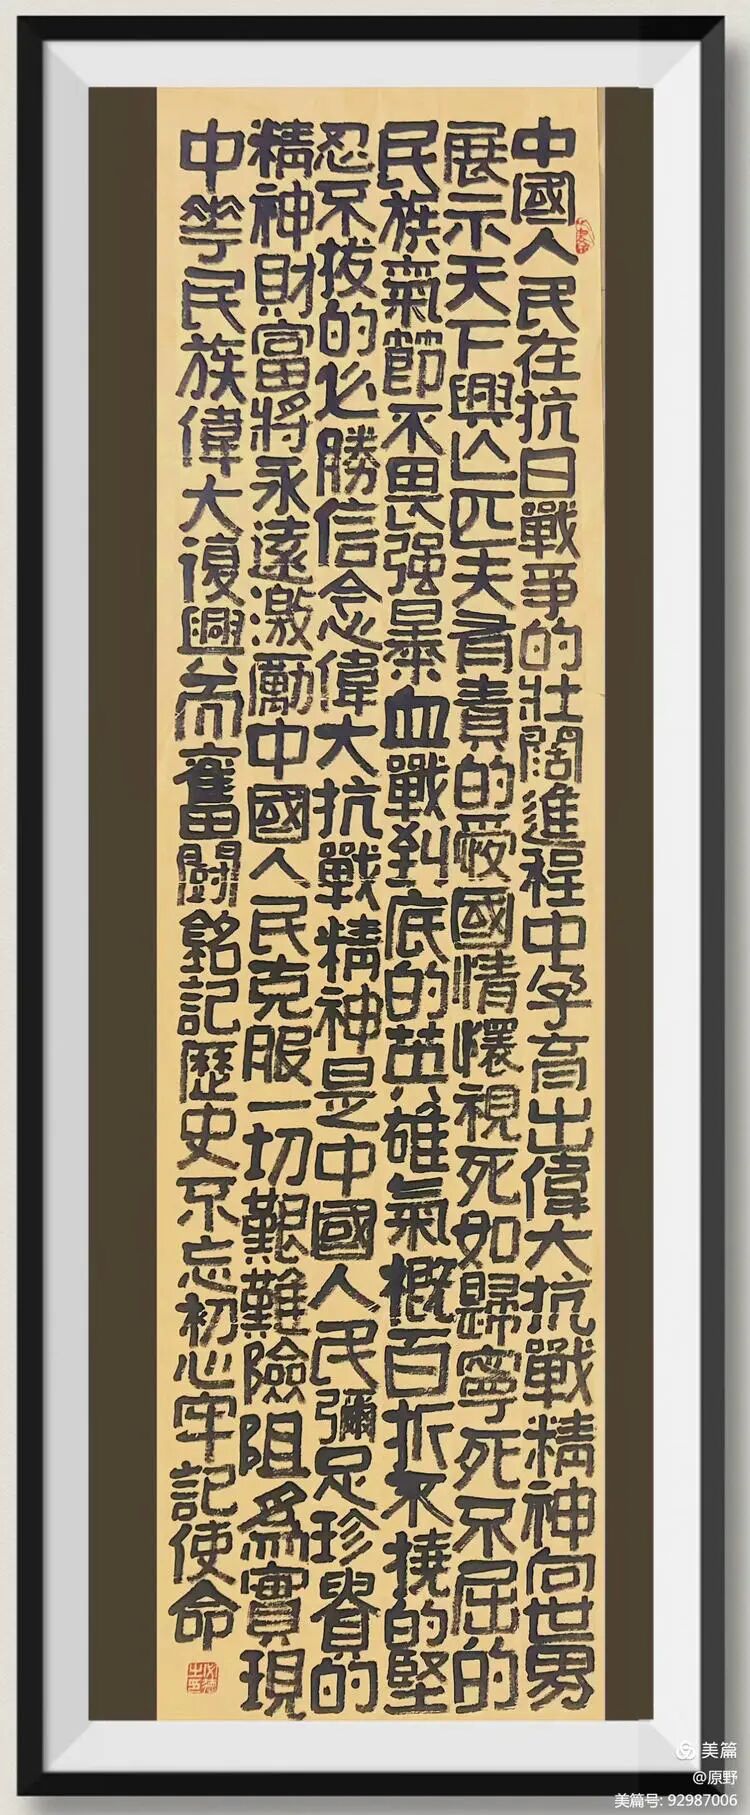 中國人民在抗日戰爭的壯闊進程中孕育出偉大抗戰精神向世男
展示天下興亡匹夫有責的愛國情懷視死如歸寧死不屈的
民族氣節不畏强暴血戰到底的英雄氣概百折不撓的堅
忍不拔的必勝信念偉大抗戰精神是中國人民彌足珍貴的
精神財富將永遠激勵中國人民克服一切艱難險阻爲實現
中華民族偉大復興而奮鬭銘記歷史不忘初心牢記使命
美篇
@原野
美篇号: 92987006